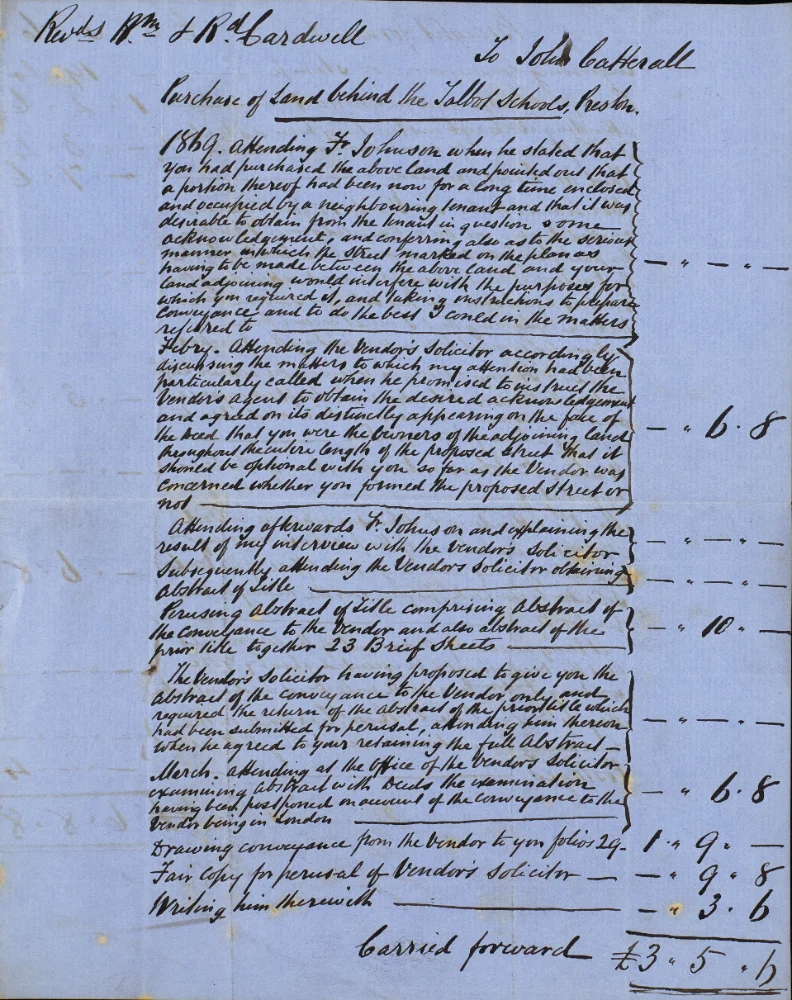 Revds Wm & Rd Cardwell
To John Catterall
Purchase of Land behind the Talbot Schools, Preston.
1869. Attending Fr. Johnson when he stated that
you had purchased the above land and pointed out that
a portion thereof had been now for a long time enclosed
and occupied by a neighbouring tenant and that it was
desirable to obtain from the tenant in question some
acknowledgement, and conferring also as to the serious
manner in which the street marked on the plan as
having to be made between the above land and your
land adjoining would interfere with the purposes for
which you required it, and taking instructions to prepare
Conveyance and to do the best I could in the matters
referred to — " — " —
Febry. Attending the Vendor's Solicitor accordingly
discussing the matters to which my attention had been
particularly called when he promised to instruct the
Vendors agent to obtain the desired acknowledgement
and agreed on its distinctly appearing on the face of
the Deed that you were the Owners of the adjoining land
throughout the entire length of the proposed street that it
should be optional with you so far as the Vendor was
concerned whether you formed the proposed street or
not — " 6 . 8
Attending afterwards Fr. Johnson and explaining the
result of my interview with the Vendors Solicitor — " — " —
Subsequently attending the Vendors Solicitor obtaining
Abstract of Title — " — " —
Perusing Abstract of Title comprising Abstract of
the Conveyance to the Vendor and also abstract of the
prior title together 23 Brief Sheets — " 10 " —
The Vendors Solicitor having proposed to give you the
abstract of the conveyance to the Vendor only and
required the return of the abstract of the prior title which
had been submitted for perusal, attending him thereon
when he agreed to your retaining the full Abstract — — " — " —
March. Attending at the office of the Vendors Solicitor
examining abstract with Deeds the examination
having been postponed on account of the Conveyance to the
Vendor being in London — " 6 . 8
Drawing Conveyance from the Vendor to you folios 29 - 1 " 9 " —
Fair Copy for perusal of Vendor's Solicitor — — " 9 " 8
Writing him therewith — " 3 . 6
Carried forward £3 " 5 " 6